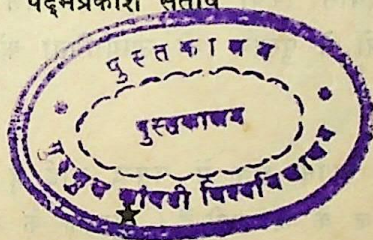 पद्मप्रकाश संतोष
पुस्तकालय
पुस्तकालय
गुरुकुल कांगड़ी विश्वविद्यालय